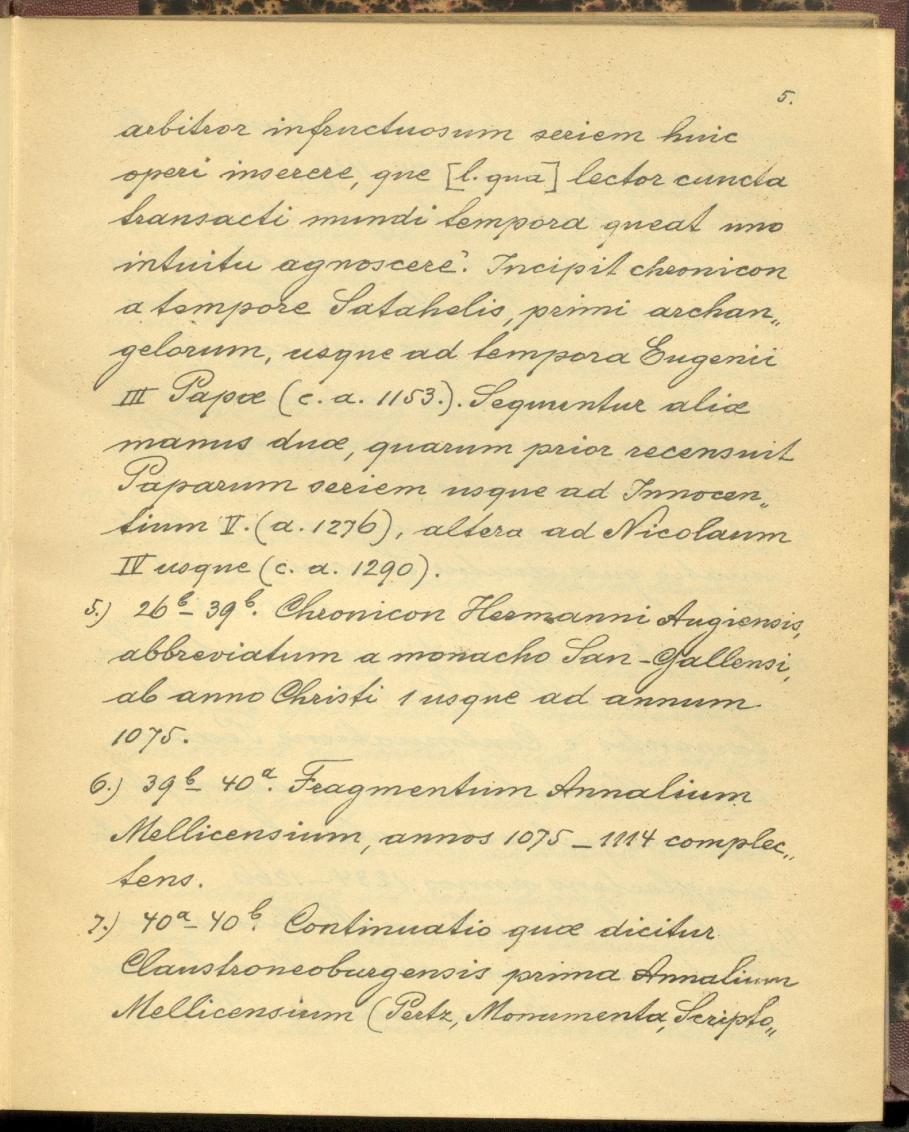 5.
arbitror infructuosum seriem huic
operi inserere, que [l. qua] lector cuncta
transacti mundi tempora queat uno
intuitu agnoscere". Incipit chronicon
a tempore Satahelis, primi archan„
gelorum, usque ad tempora Eugenii
III Papæ (c. a. 1153.). Sequuntur aliæ
manus duæ, quarum prior recensuit
Paparum seriem usque ad Innocen„
tium V. (a. 1276), altera ad Nicolaum
IV usque (c. a. 1290).
5.) 26b – 39b. Chronicon Hermanni Augiensis,
abbreviatum a monacho San-Gallensi,
ab anno Christi 1 usque ad annum
1075.
6.) 39b – 40a. Fragmentum Annalium
Mellicensium, annos 1075 – 1114 complec„
tens.
7.) 40a – 40b. Continuatio quæ dicitur
Claustroneoburgensis prima Annalium
Mellicensium (Pertz, Monumenta, Scripto„